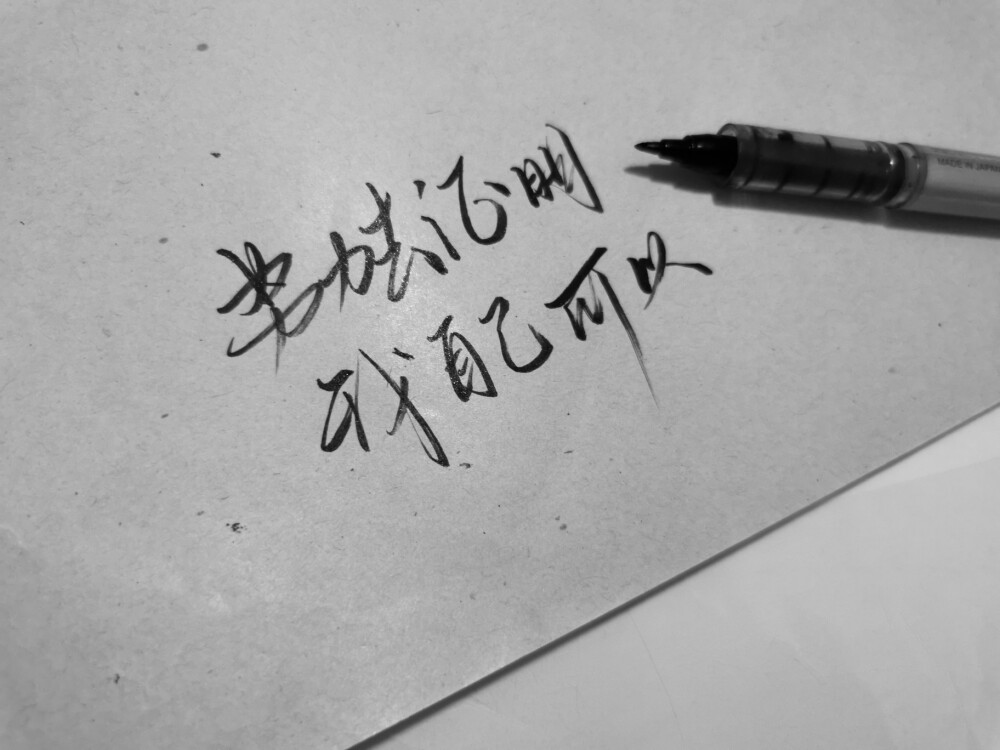 努力去证明
我自己可以
MADE IN JAPAN